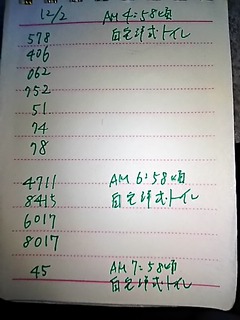 12/2 AM 4:58頃
578 自宅洋式トイレ
406
062
752
51
74
78
4711 AM 6:58頃
8415 自宅洋式トイレ
6017
8017
45 AM 7:58頃
自宅洋式トイレ